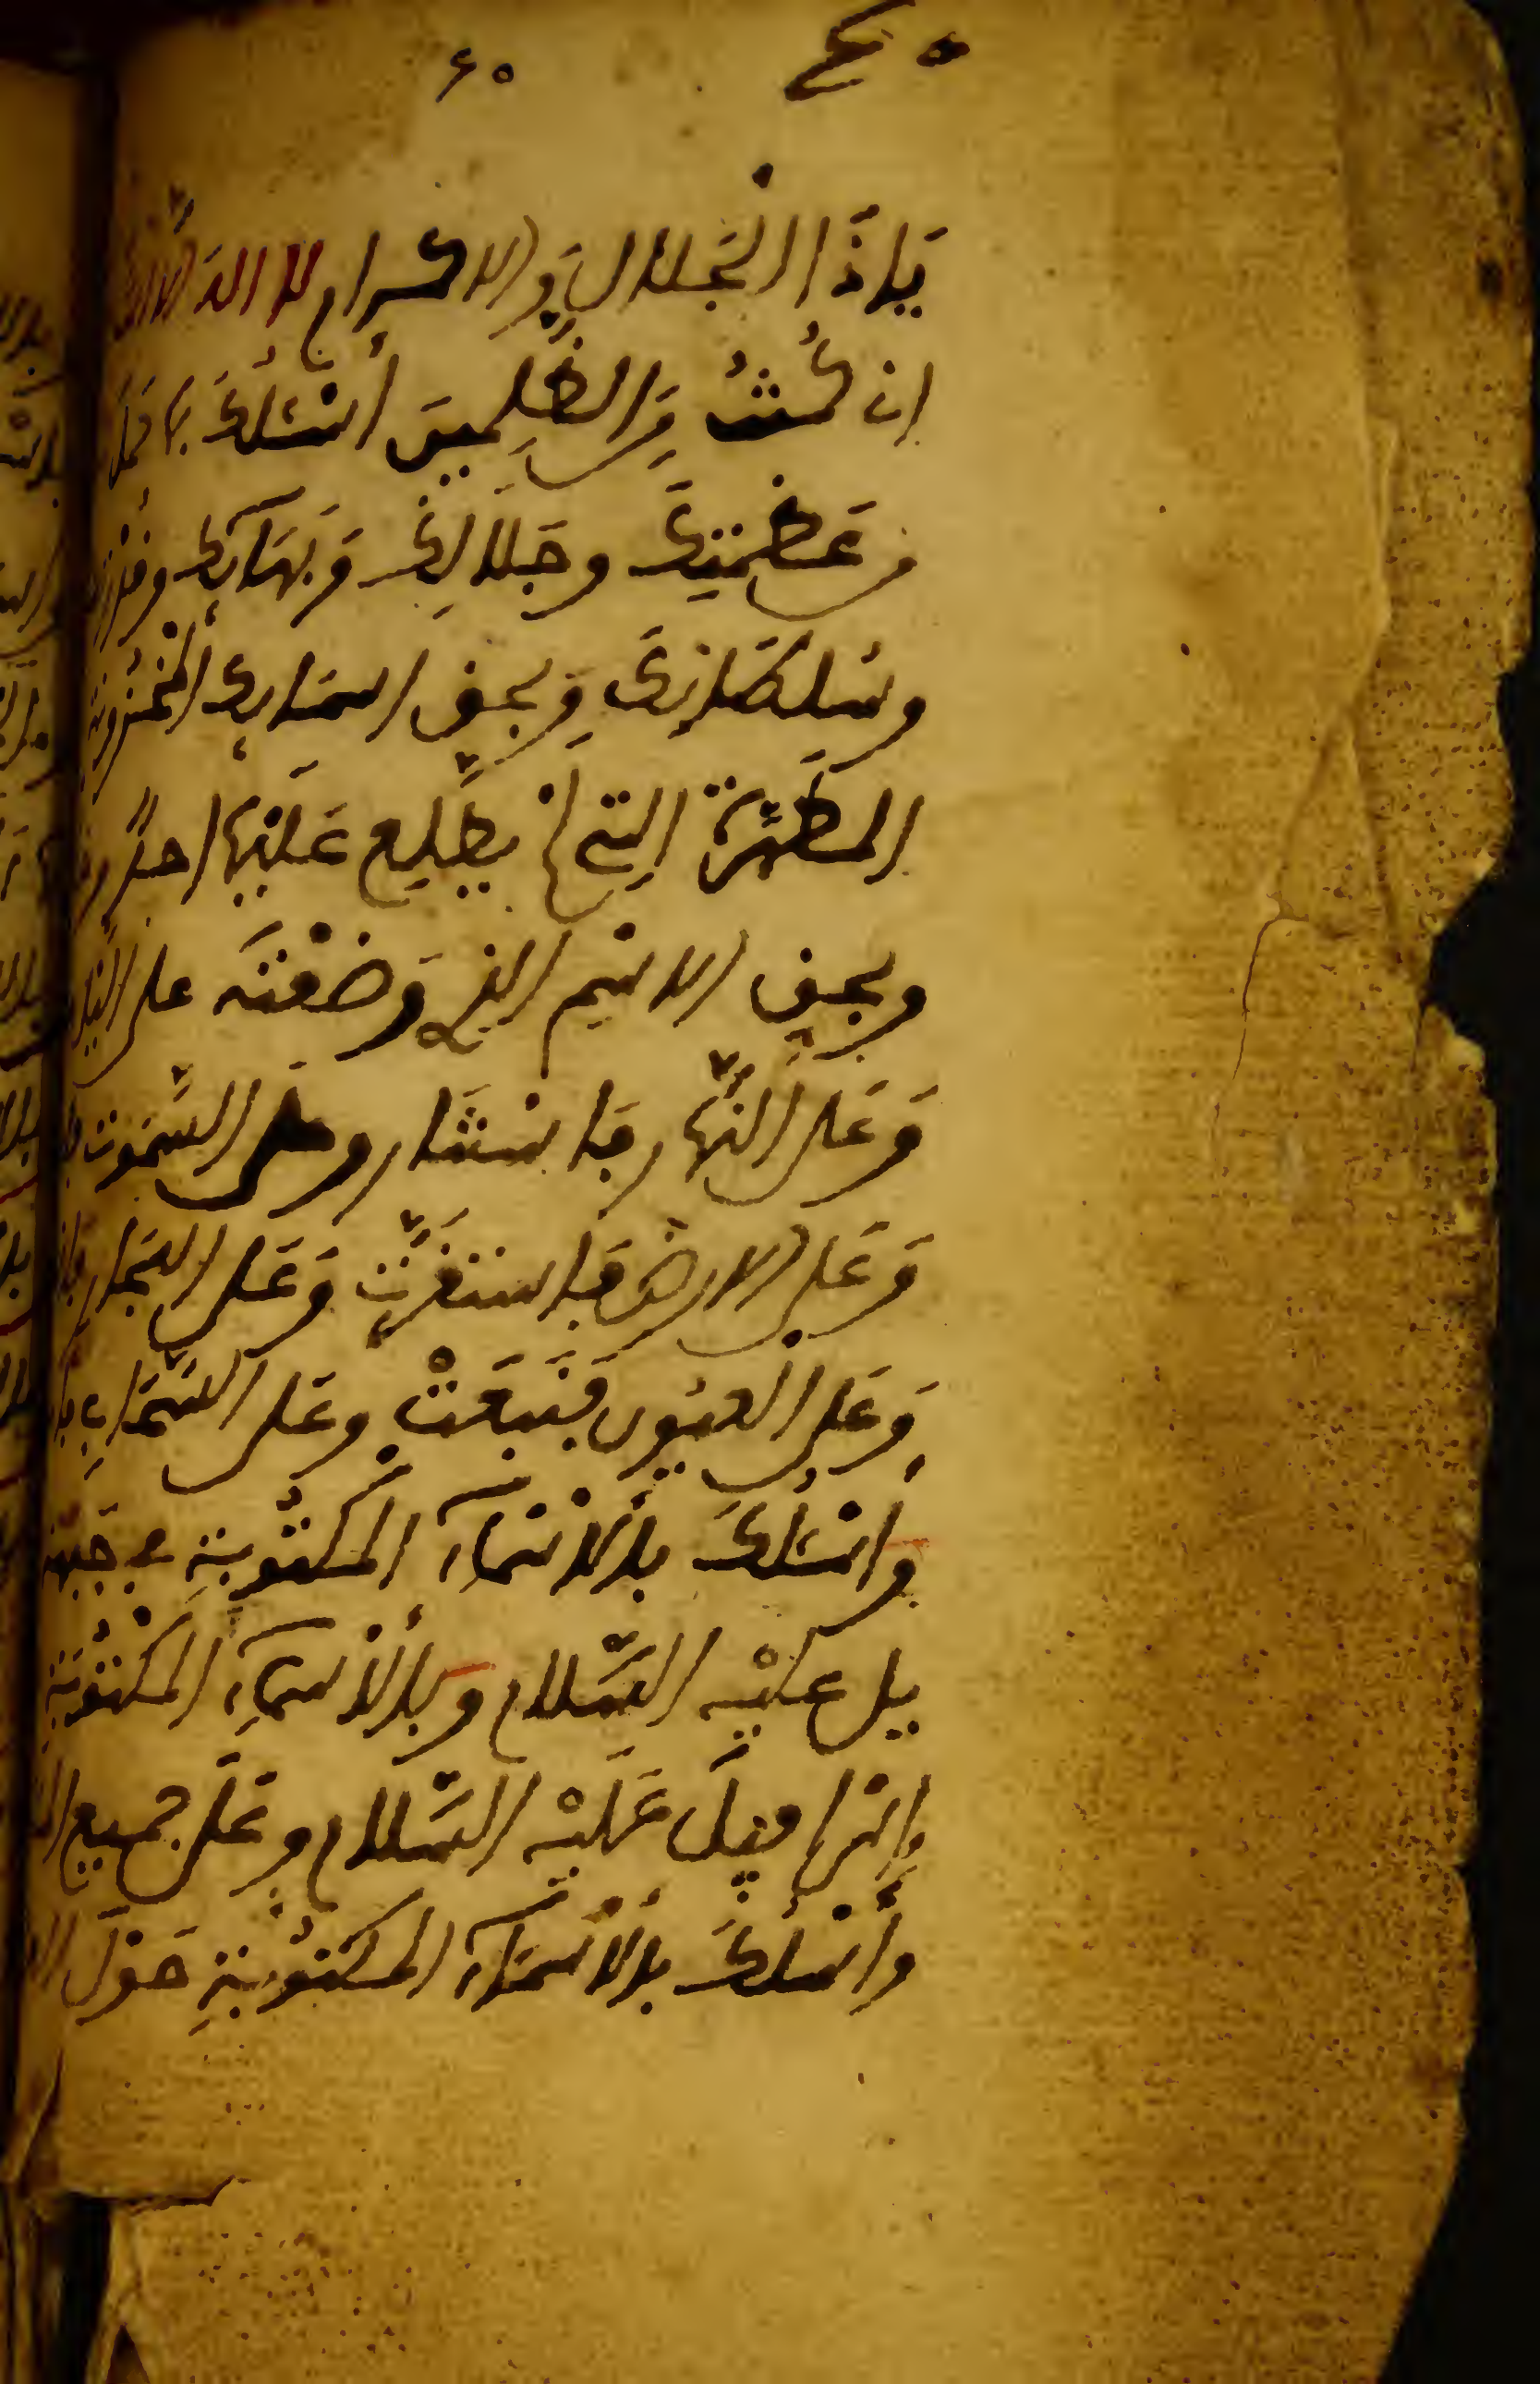 ٤٥
يَا ذَا الْجَلَالِ وَالاكرام لا اله الا
ان كُنْتُ مِنَ الظَّلِمِينَ أَسْئَلُكَ بِمَا حَمَلَ
مِنْ عَظَمَتِكَ وجَلَالِكَ وَبَهَائِكَ وقُدْرَتِ
وسُلطَانِكَ وَبِحَقِّ اسمَائِكَ الْمَخْزُونَة
المطَهَّرَةِ التِي لم يطَّلِع عَلَيْهَا احدٌ
وبحقِ الاسْمِ الذِي وَضَعْتَه على اليْلِ
وَعَلَى النَّهَارِ فَاسْتَنَارَ وعلى السَّمَوٰت
وَعَلَى الارضِ فَاستَقَرَّت وَعَلى الجِبَال
وَعَلَى الْعيُونِ فَنَبَعَتْ وعَلى السَّحَابِ
وَاسْئَلُكَ بِالأَسْمَآءِ المَكْتُوبَةِ فِي جَبْهَة
يل عليْهِ السَّلام وَبِالأَسمَآءِ المَكْتُوبَةِ
اِسْرَافِيلَ عَلَيْهِ السَّلام وعَلَى جميع
وأسْئَلُكَ بالأَسْمَآءِ المَكتُوبَةِ حَوْلَ